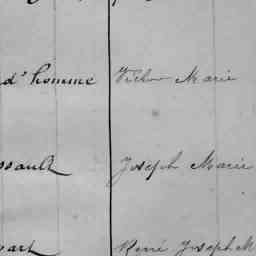 d'homme Victor Marie
ssault Joseph Marie
René Joseph M